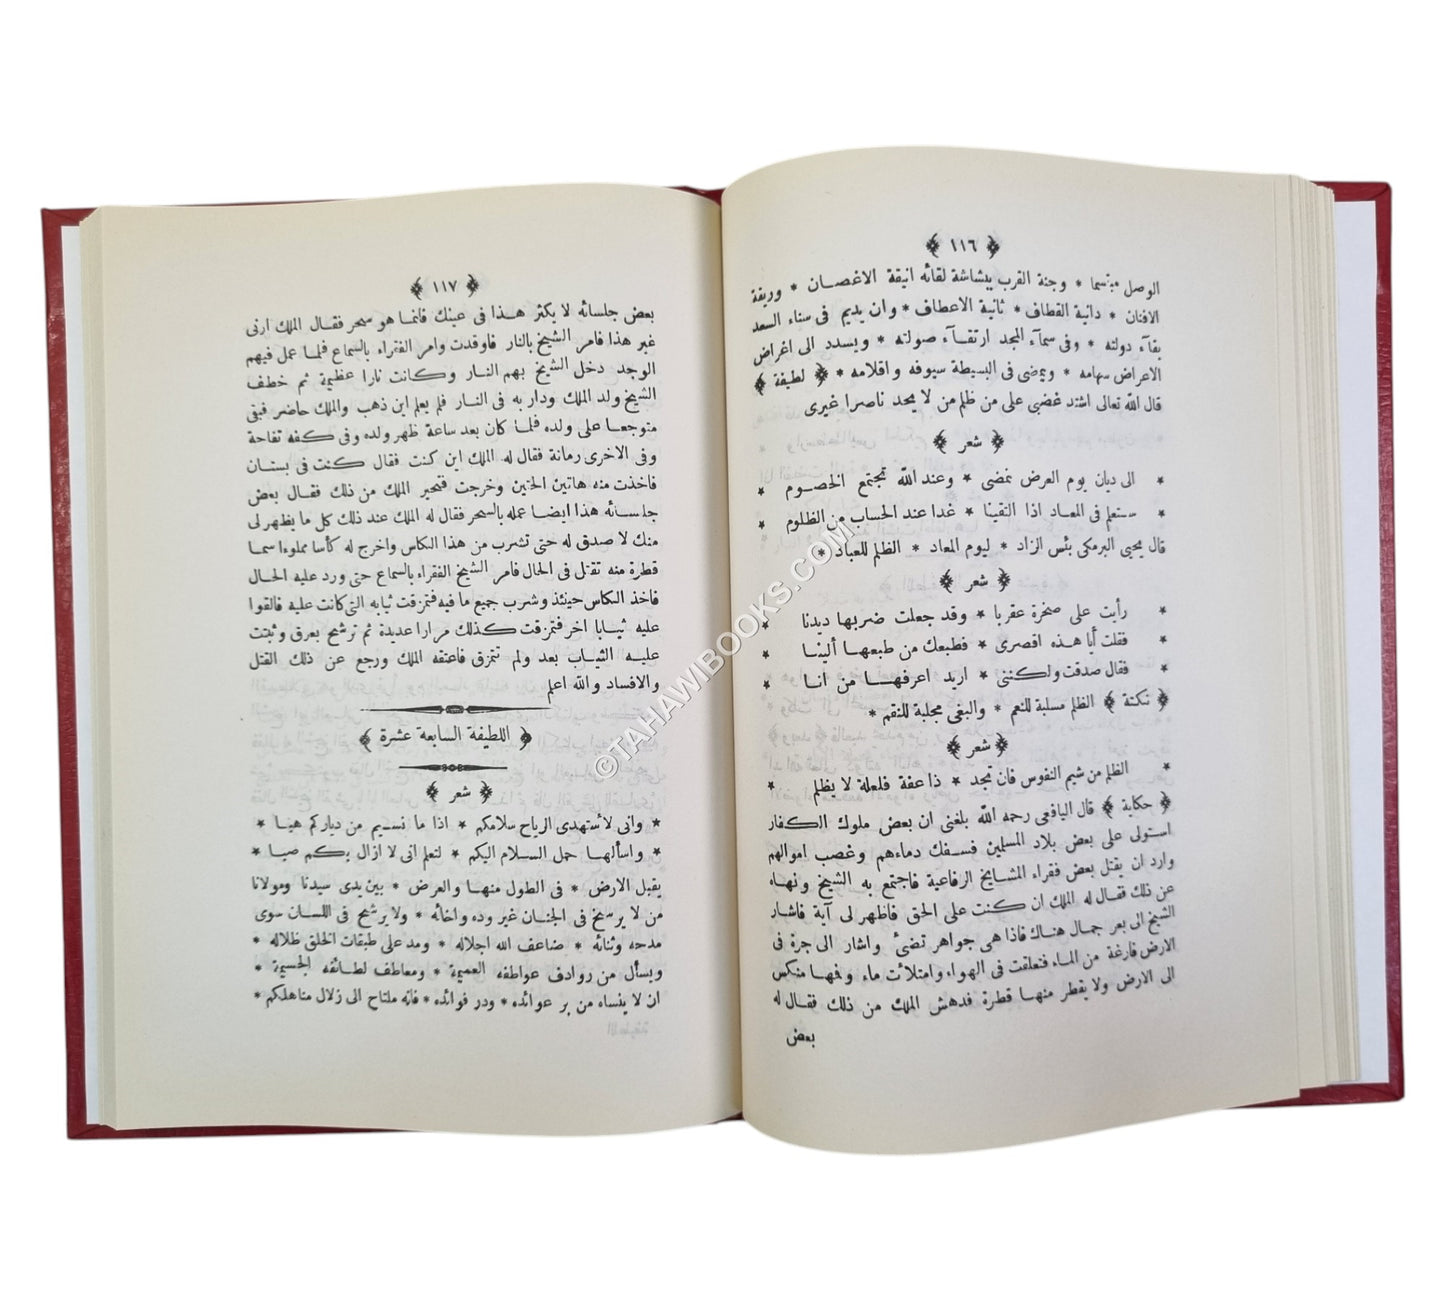 ﴿ ١١٦ ﴾
الوصل مبتسما * وجنة القرب ببشاشة لقائه انيقة الاغصان * وريفة
الافنان * دانية القطاف * ثانية الاعطاف * وان يديم فى سناء السعد
بقاء دولته * وفى سماء المجد ارتقاء صولته * ويسدد الى اغراض
الاعراض سهامه * ويمضى فى البسيطة سيوفه واقلامه * ﴿ لطيفة ﴾
قال الله تعالى اشتد غضبى على من ظلم من لا يجد ناصرا غيرى
﴿ شعر ﴾
* الى ديان يوم العرض نمضى * وعند الله تجتمع الخصوم *
* ستعلم فى المعاد اذا التقينا * غدا عند الحساب من الظلوم *
قال يحيى البرمكى بئس الزاد * ليوم المعاد * الظلم للعباد *
﴿ شعر ﴾
* رأيت على صخرة عقربا * وقد جعلت ضربها ديدنا *
* فقلت أيا هذه اقصرى * فطبعك من طبعها ألينا *
* فقال صدقت ولكننى * اريد اعرفها من انا *
﴿ نكتة ﴾ الظلم مسلبة للنعم * والبغى مجلبة للنقم *
﴿ شعر ﴾
* الظلم من شيم النفوس فان تجد * ذا عفة فلعلة لا يظلم *
﴿ حكاية ﴾ قال اليافعى رحمه الله بلغنى ان بعض ملوك الكفار
استولى على بعض بلاد المسلمين فسفك دماءهم وغصب اموالهم
وارد ان يقتل بعض فقراء المشايخ الرفاعية فاجتمع به الشيخ ونهاه
عن ذلك فقال له الملك ان كنت على الحق فاظهر لى آية فاشار
الشيخ الى بعر جمال هناك فاذا هى جواهر تضئ واشار الى جرة فى
الارض فارغة من الماء فتعلقت فى الهواء وامتلائت ماء وفها منكس
الى الارض ولا يقطر منها قطرة فدهش الملك من ذلك فقال له
بعض
﴿ ١١٧ ﴾
بعض جلسائه لا يكثر هذا فى عينك فانما هو سحر فقال الملك ارنى
غير هذا فامر الشيخ بالنار فاوقدت وامر الفقراء بالسماع فلما عمل فيهم
الوجد دخل الشيخ بهم النار وكانت نارا عظيمة ثم خطف
الشيخ ولد الملك ودار به فى النار فلم يعلم اين ذهب والملك حاضر فبقى
متوجعا على ولده فلما كان بعد ساعة ظهر ولده وفى كفه تفاحة
وفى الاخرى رمانة فقال له الملك اين كنت فقال كنت فى بستان
فاخذت منه هاتين الحبتين وخرجت فتحير الملك من ذلك فقال بعض
جلسائه هذا ايضا عمله بالسحر فقال له الملك عند ذلك كل ما يظهر لى
منك لا صدق له حتى تشرب من هذا الكاس واخرج له كأسا مملوءا سما
قطرة منه تقتل فى الحال فامر الشيخ الفقراء بالسماع حتى ورد عليه الحال
فاخذ الكاس حينئذ وشرب جميع ما فيه فتمزقت ثيابه التى كانت عليه فالقوا
عليه ثيابا اخر فتمزقت كذلك مرارا عديدة ثم ترشح بعرق وثبتت
عليه الثياب بعد ولم تتمزق فاعتقه الملك ورجع عن ذلك القتل
والافساد والله اعلم
﴿ اللطيفة السابعة عشرة ﴾
﴿ شعر ﴾
* وانى لاستهدى الرياح سلامكم * اذا ما نسيم من دياركم هبا *
* واسألها حمل السلام اليكم * لتعلم انى لا ازال بكم صبا *
يقبل الارض * فى الطول منها والعرض * بين يدى سيدنا ومولانا
من لا يرسخ فى الجنان غير وده واخائه * ولا يرشح فى اللسان سوى
مدحه وثنائه * ضاعف الله اجلاله * ومد على طبقات الخلق ظلاله *
ويسأل من روادف عواطفه العميمة * ومعاطف لطائفه الجسيمة *
ان لا ينساه من بر عوائده * ودر فوائده * فانه ملتاح الى زلال مناهلكم *
©TAHAWIBOOKS.COM